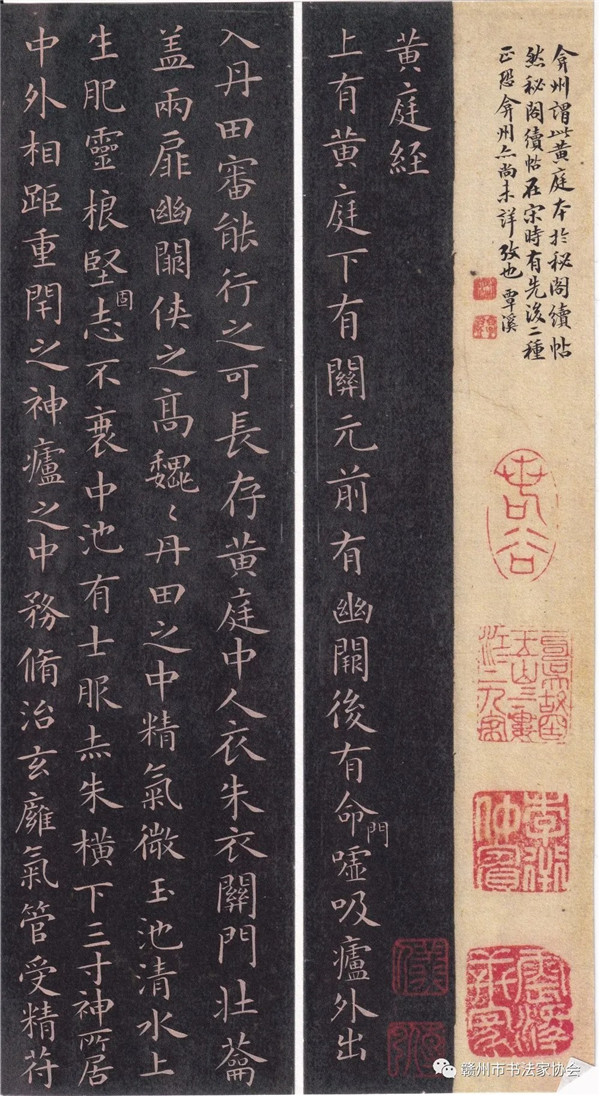 弇州謂此黄庭本於秘閣續帖
然秘閣續帖在宋時有先後二種
正恐弇州亦尚未詳攷也 覃溪
黄庭經
上有黄庭下有關元前有幽闕後有命門噓吸廬外出
入丹田審能行之可長存黄庭中人衣朱衣關門壯蘥
盖兩扉幽闕俠之髙魏〻丹田之中精氣微玉池清水上
生肥靈根堅固志不衰中池有士服赤朱横下三寸神所居
中外相距重閇之神廬之中務脩治玄廱氣管受精苻
赣州市书法家协会